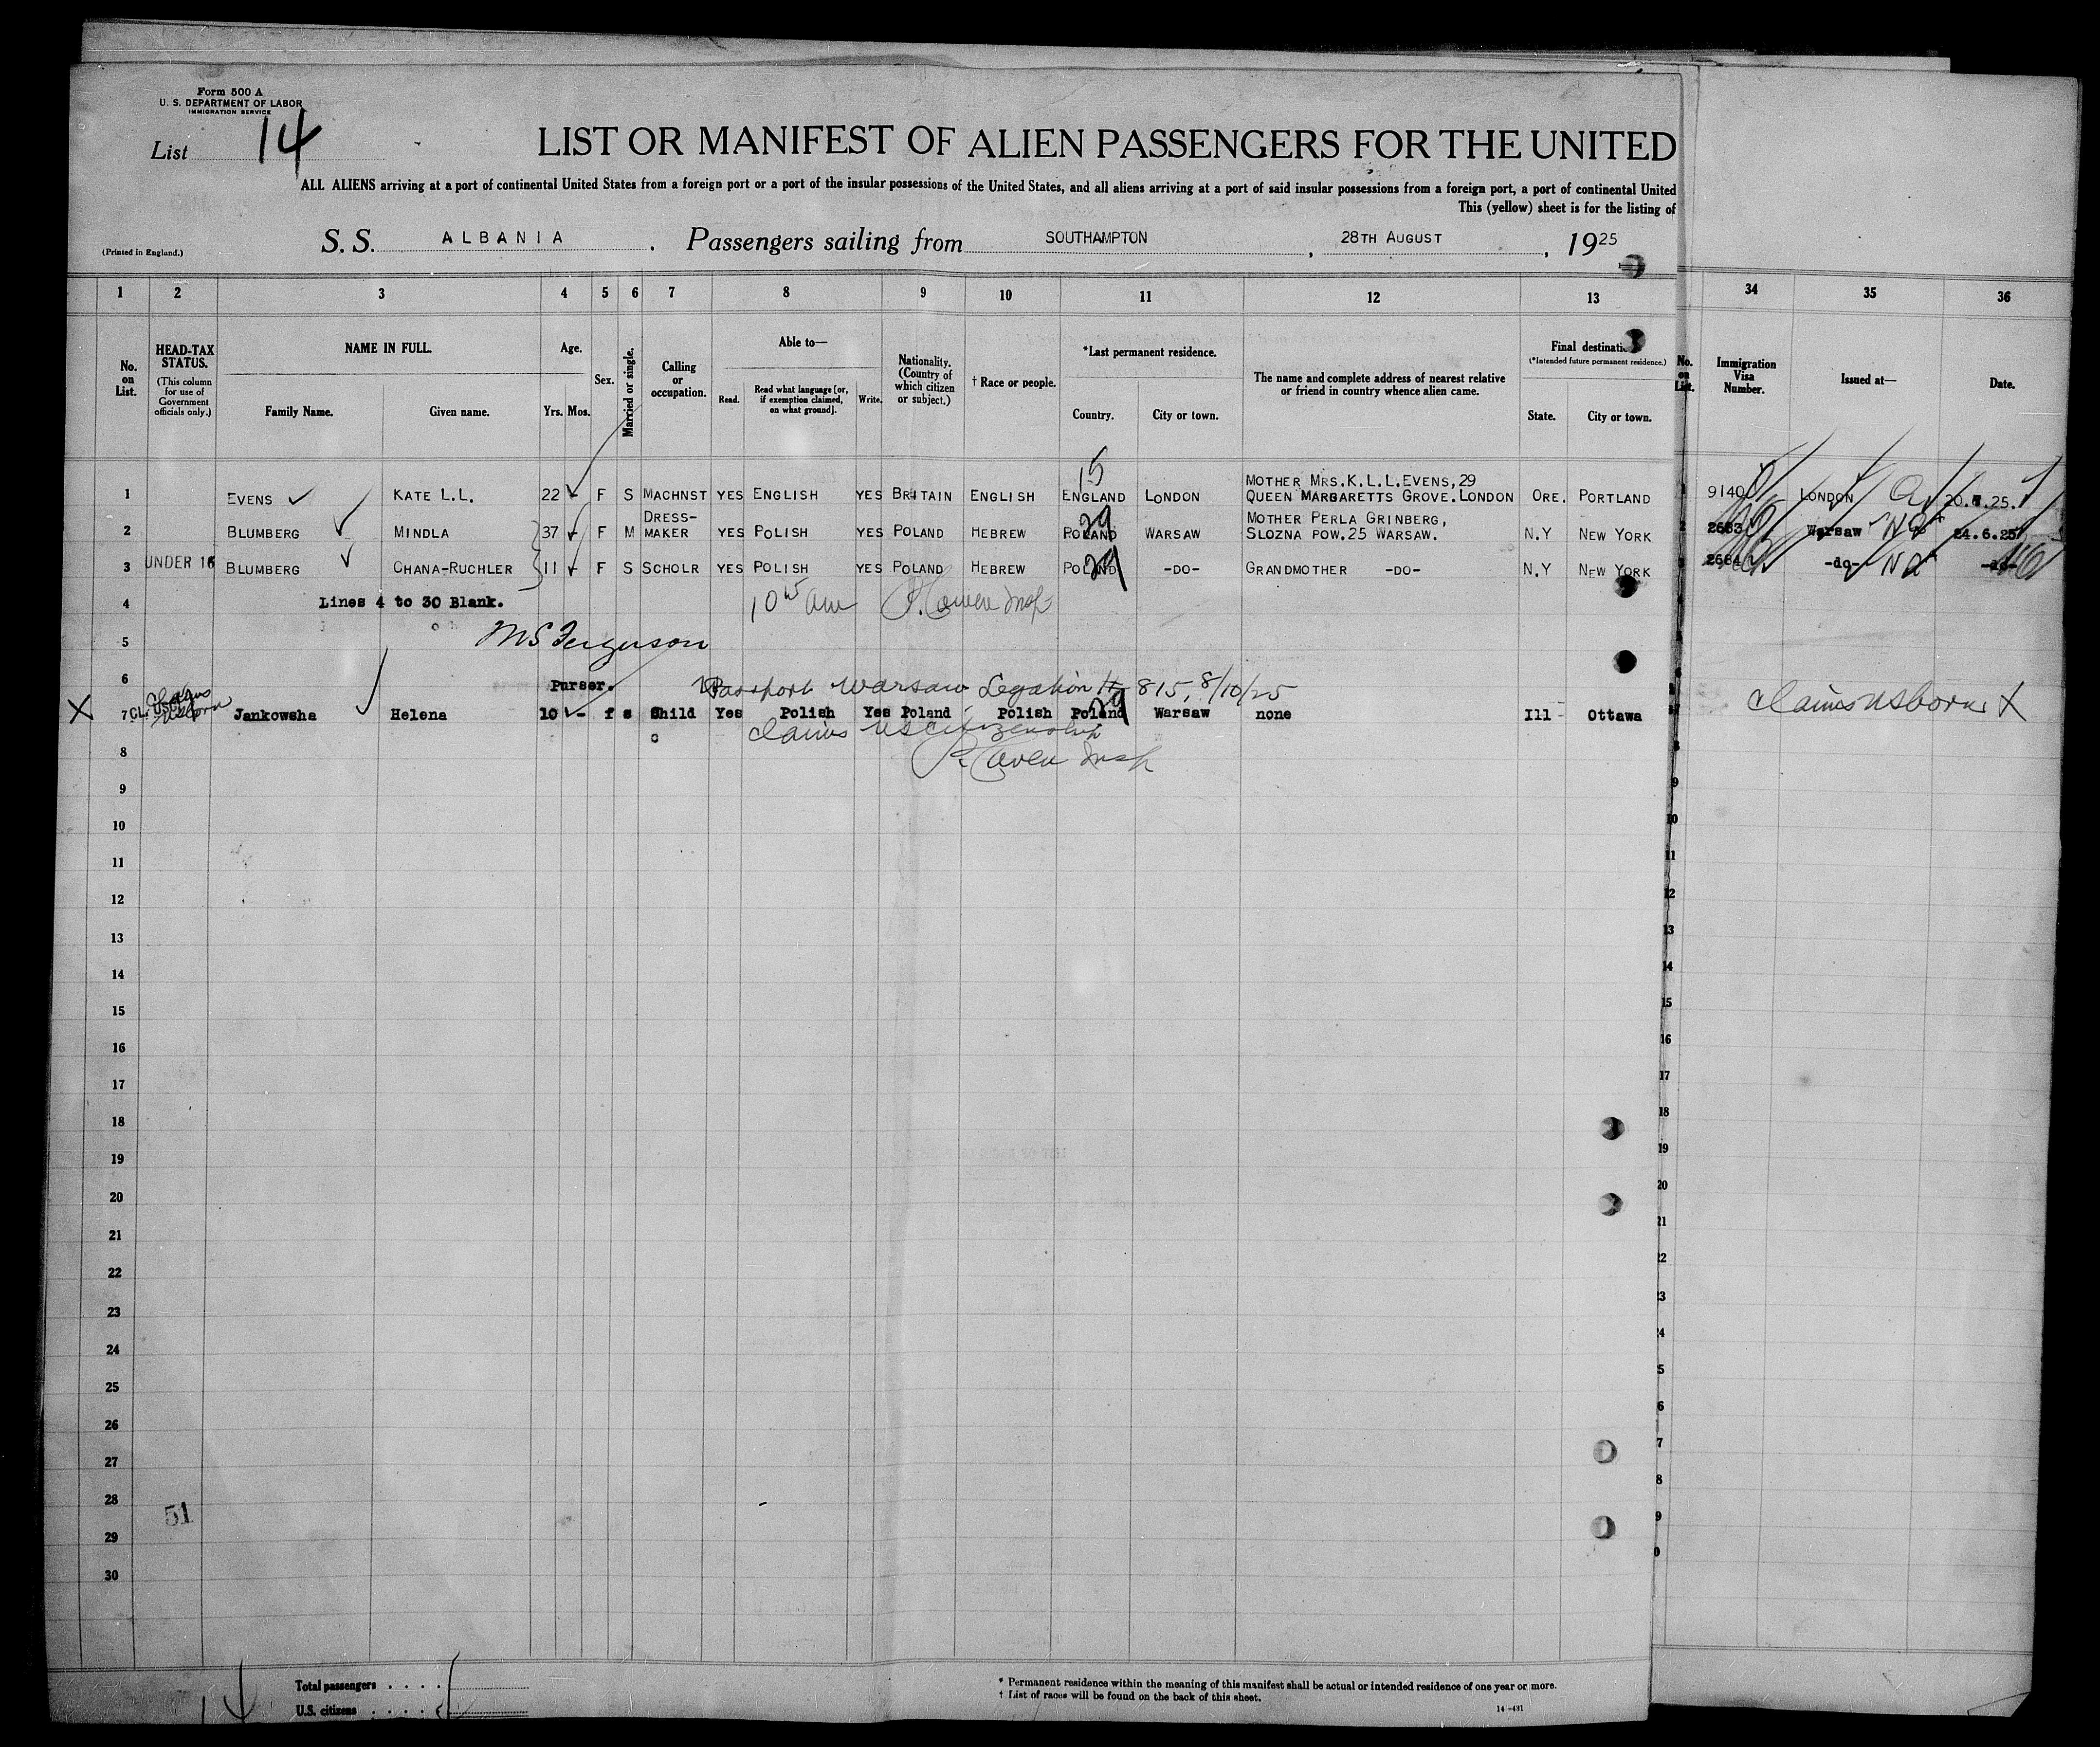 Form 500 A
U. S. DEPARTMENT OF LABOR
IMMIGRATION SERVICE
List 14
LIST OR MANIFEST OF ALIEN PASSENGERS FOR THE UNITED
ALL ALIENS arriving at a port of continental United States from a foreign port or a port of the insular possessions of the United States, and all aliens arriving at a port of said insular possessions from a foreign port, a port of continental United
This (yellow) sheet is for the listing of
(Printed in England.)
S. S. ALBANIA . Passengers sailing from SOUTHAMPTON , 28TH AUGUST , 1925
1 2 3 4 5 6 7 8 9 10 11 12 13 34 35 36
No. on List.
HEAD-TAX STATUS. (This column for use of Government officials only.)
NAME IN FULL.
Family Name. Given name.
Age.
Yrs. Mos.
Sex.
Married or single.
Calling or occupation.
Able to—
Read. Read what language [or, if exemption claimed, on what ground]. Write.
Nationality. (Country of which citizen or subject.)
† Race or people.
*Last permanent residence.
Country. City or town.
The name and complete address of nearest relative or friend in country whence alien came.
Final destinati
(*Intended future permanent residence.)
State. City or town.
No. on List.
Immigration Visa Number.
Issued at—
Date.
15
1 EVENS KATE L.L. 22 - F S MACHNST YES ENGLISH YES BRITAIN ENGLISH ENGLAND LONDON MOTHER MRS.K.L.L.EVENS,29 QUEEN MARGARETTS GROVE.LONDON ORE. PORTLAND 1 9140 LONDON 20. .25.
2 BLUMBERG MINDLA 37 - F M DRESS-MAKER YES POLISH YES POLAND HEBREW POLAND 29 WARSAW MOTHER PERLA GRINBERG, SLOZNA POW.25 WARSAW. N.Y NEW YORK 2 2683 Warsaw 24.6.25
3 UNDER 16 BLUMBERG CHANA-RUCHLER 11 - F S SCHOLR YES POLISH YES POLAND HEBREW POLAND 29 -DO- GRANDMOTHER -DO- N.Y NEW YORK 3 2684 -do- -do-
4 Lines 4 to 30 Blank. 10 15 am Insp
5 M S Ferguson
6 Purser. Passport Warsaw Legation # 815, 8/10/25
X 7 CL. USC Claims US born Jankowsha Helena 10 - f s Child Yes Polish Yes Poland Polish Poland 29 Warsaw none Ill - Ottawa Claims US born X
claims US citizenship
8 Insp
9 9
10 10
11 11
12 12
13 13
14 14
15 15
16 16
17 17
18 18
19 19
20 20
21 21
22 22
23 23
24 24
25 25
26 26
27 27
28 51 28
29 29
30 30
Total passengers . . . .
U.S. citizens . . . .
* Permanent residence within the meaning of this manifest shall be actual or intended residence of one year or more.
† List of races will be found on the back of this sheet.
14-431